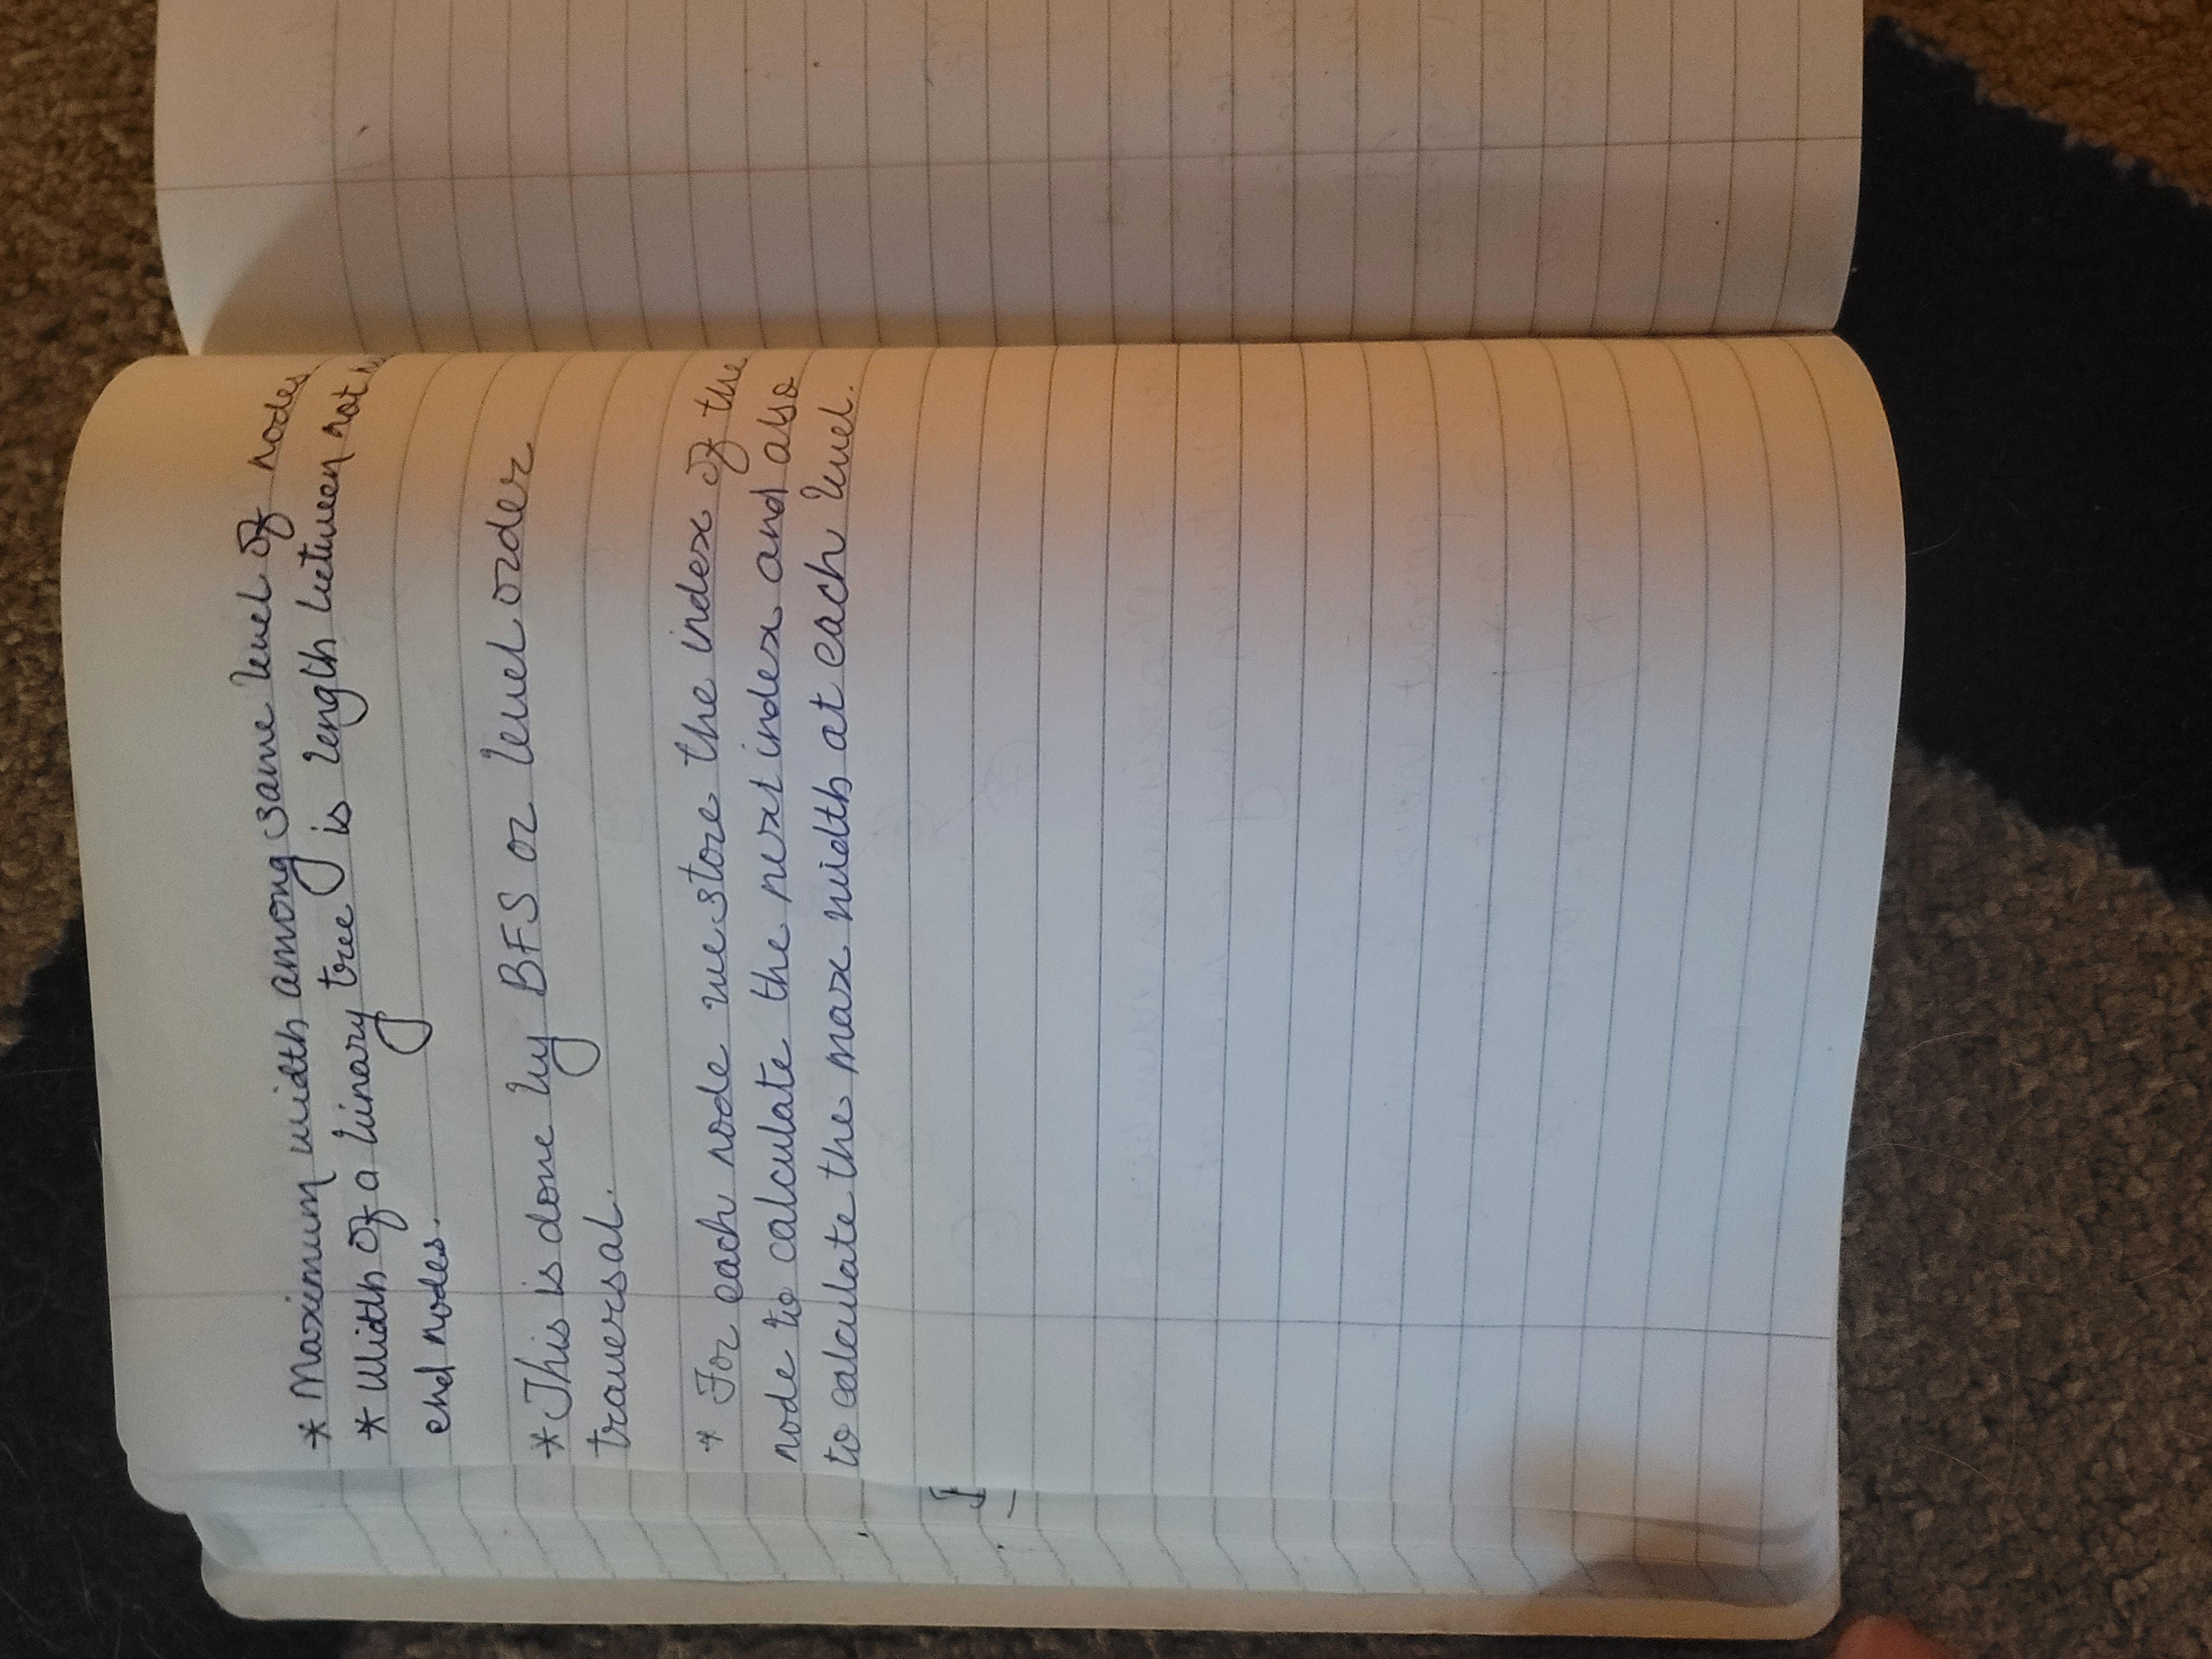 * Maximum width among same level of nodes
* Width of a binary tree is length between not
end nodes.
* This is done by BFS or level order
traversal.
* For each node we store the index of the
node to calculate the next index and also
to calculate the max width at each level.